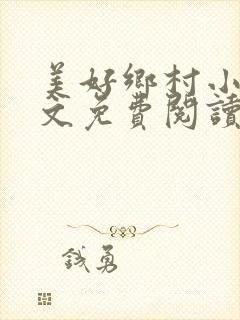 美好鄉村小
文免費閱讀
錢勇